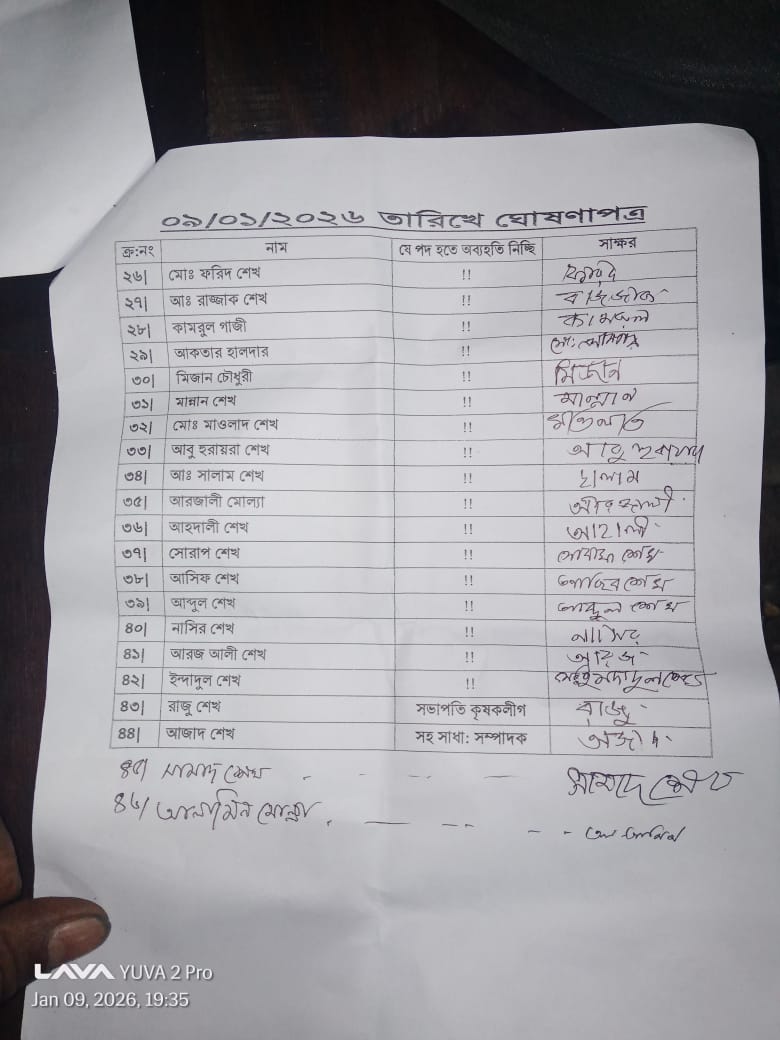 ০৯/০১/২০২৬ তারিখে ঘোষণাপত্র
ক্র:নং নাম যে পদ হতে অব্যহতি নিচ্ছি সাক্ষর
২৬| মোঃ ফরিদ শেখ !! ফরিদ
২৭| আঃ রাজ্জাক শেখ !! রাজ্জাক
২৮| কামরুল গাজী !! কামরুল
২৯| আকতার হালদার !! মো:
৩০| মিজান চৌধুরী !! মিজান
৩১| মান্নান শেখ !! মান্নান
৩২| মোঃ মাওলাদ শেখ !!
৩৩| আবু হুরায়রা শেখ !! আবু
৩৪| আঃ সালাম শেখ !! ছালাম
৩৫| আরজালী মোল্যা !!
৩৬| আহদালী শেখ !!
৩৭| সোরাপ শেখ !! শেখ
৩৮| আসিফ শেখ !! শেখ
৩৯| আব্দুল শেখ !! আব্দুল শেখ
৪০| নাসির শেখ !! নাসির
৪১| আরজ আলী শেখ !! আরজ
৪২| ইন্দাদুল শেখ !!
৪৩| রাজু শেখ সভাপতি কৃষকলীগ রাজু
৪৪| আজাদ শেখ সহ সাধা: সম্পাদক আজাদ
৪৫/ সামাদ শেখ সামাদ শেখ
৪৬/ আলামিন মোল্লা আলামিন
LAVA YUVA 2 Pro
Jan 09, 2026, 19:35